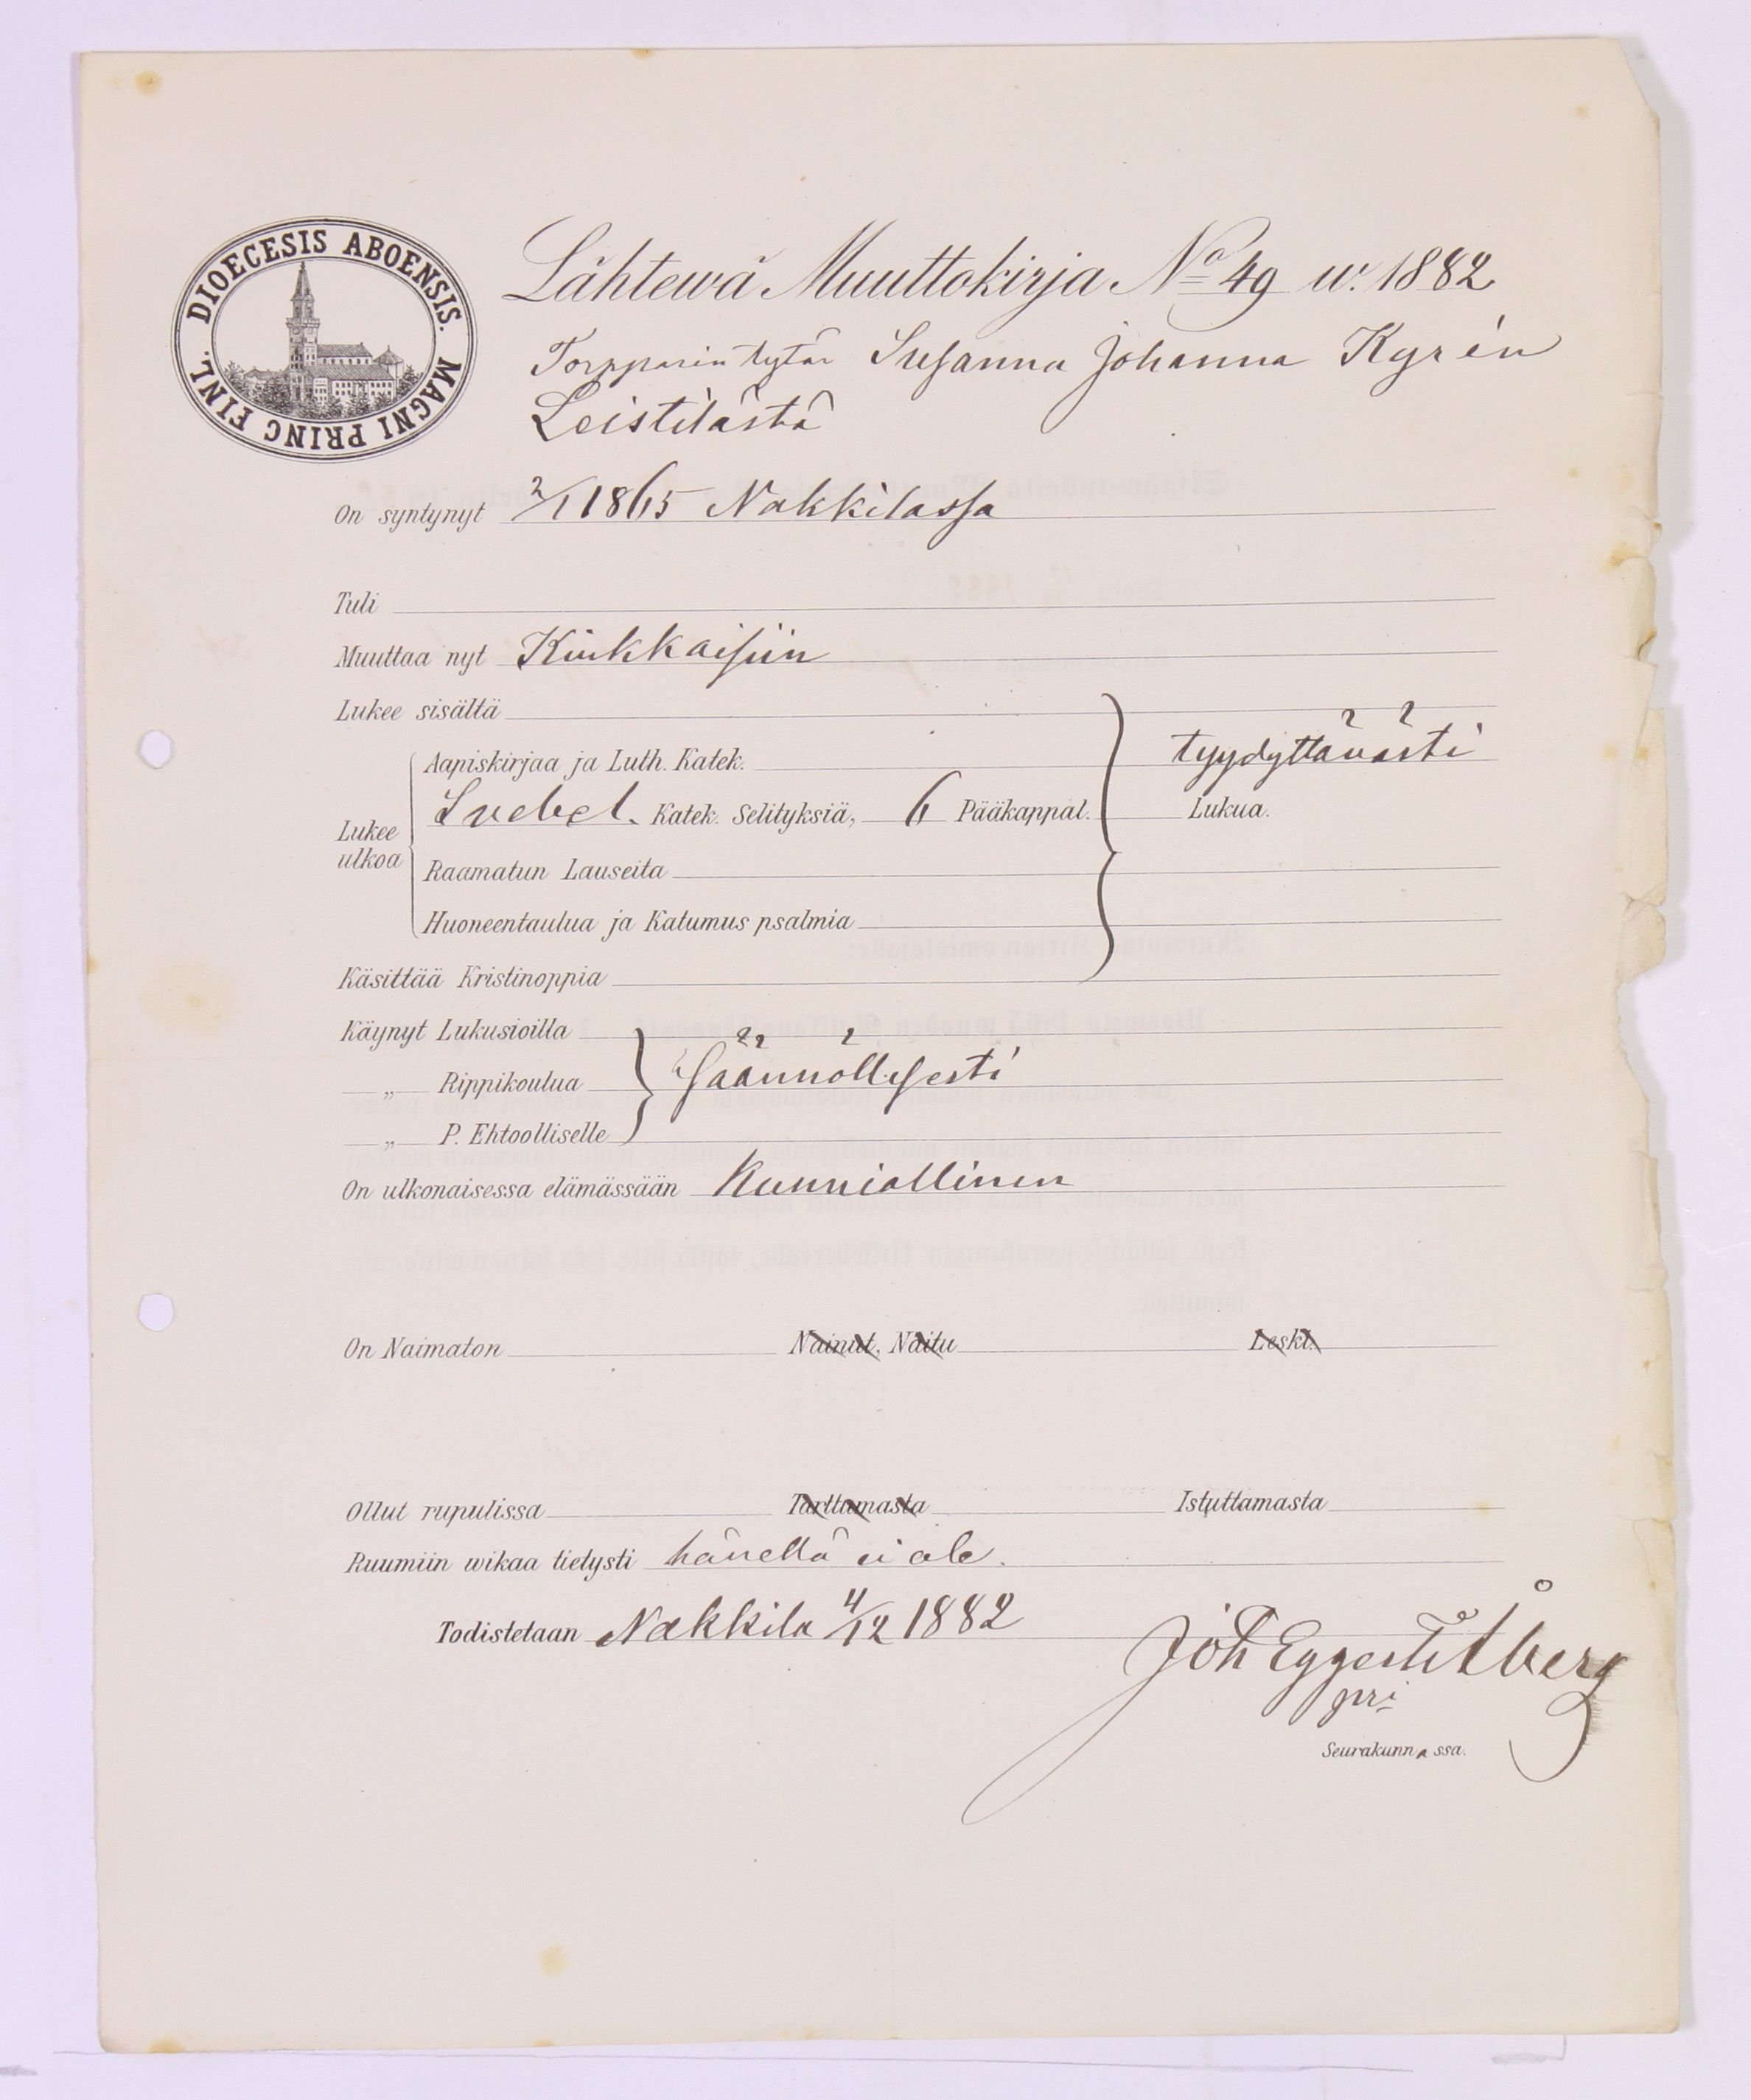 DIOECESIS ABOENSIS. MAGNI PRINC FINL.
Lähtewä Muuttokirja No 49 w. 1882
Torpparin tytär Susanna Johanna Kyrén
Leistilästä
On syntynyt 2/1 1865 Nakkilassa
Tuli
Muuttaa nyt Kiukkaisiin
Lukee sisältä
Aapiskirjaa ja Luth. Katek. tyydyttävästi
Lukee ulkoa
Svebel. Katek. Selityksiä, 6 Pääkappal. Lukua.
Raamatun Lauseita
Huoneentaulua ja Katumus psalmia
Käsittää Kristinoppia
Käynyt Lukusioilla
„ Rippikoulua säännöllisesti
„ P. Ehtoolliselle
On ulkonaisessa elämässään Kunniallinen
On Naimaton Nainut, Naitu Leski.
Ollut rupulissa Tarttumasta Istuttamasta
Ruumiin wikaa tietysti hänellä ei ole.
Todistetaan Nakkila 4/12 1882
Joh Eggert Åberg
Seurakunnassa.